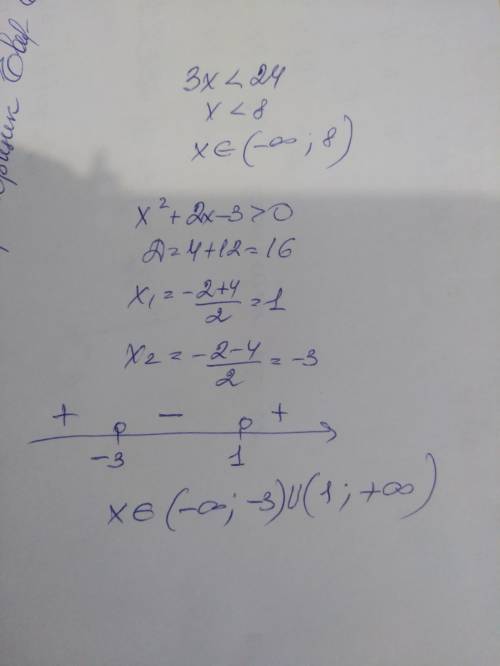 3x < 24
x < 8
x ∈ (-∞; 8)
x² + 2x - 3 > 0
Д = 4 + 12 = 16
x₁ = -2+4/2 = 1
x₂ = -2-4/2 = -3
+ - +
-3 1
x ∈ (-∞; -3) U (1; +∞)